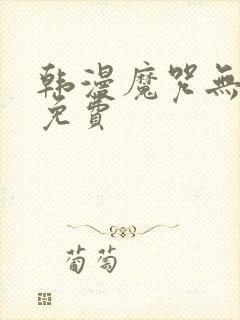 韩漫魔咒無
免費
葡萄